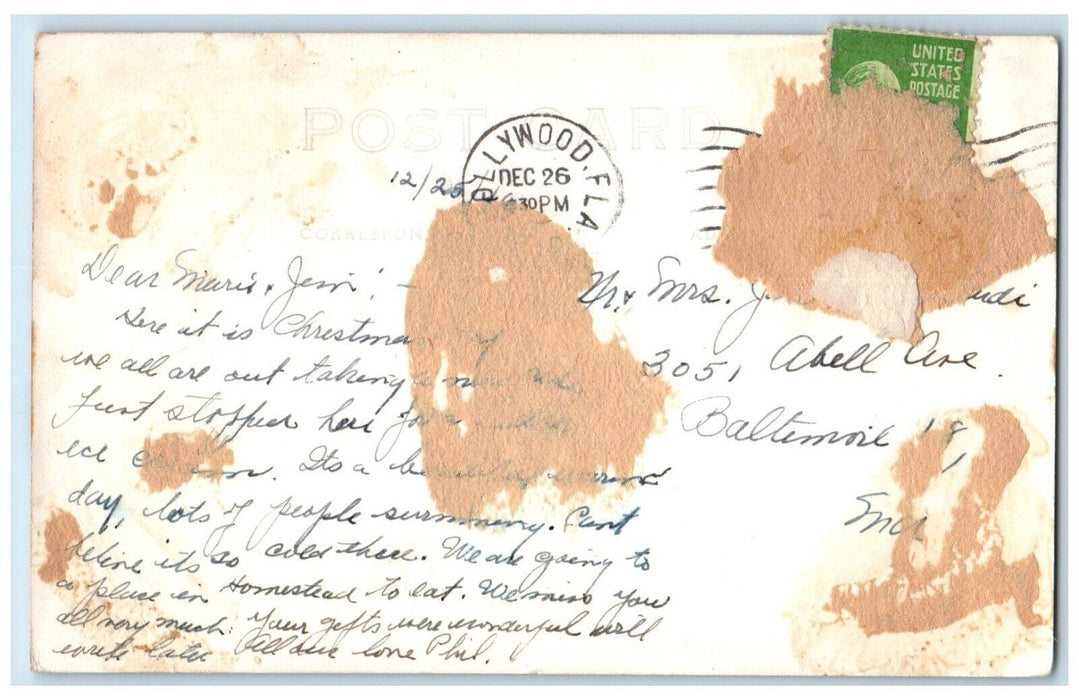 UNITED
STATES
POSTAGE
POST CARD
LYWOOD, FLA
DEC 26
30 PM
12/25
CORRESPON
Dear Marie & Jim! -
Here it is Christmas
we all are out taking a
Just stopped here for a
ice cream. Its a beautiful warm
day, lots of people swimming. Cant
believe its so cold there. We are going to
a place in Homestead to eat. We miss you
all very much. Your gifts were wonderful will
write later All our love Phil.
Mr & Mrs. J.
3051 Abell Ave
Baltimore 18,
Md